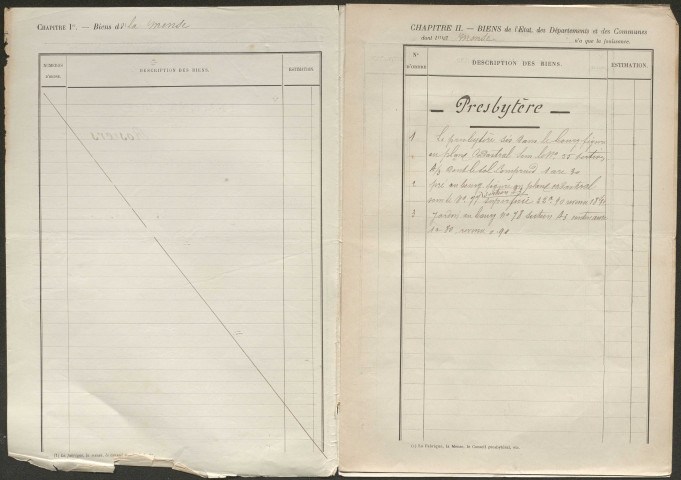 CHAPITRE Ier. — Biens de la mense
NUMÉROS D'ORDRE.
DESCRIPTION DES BIENS.
ESTIMATION.
(1) La fabrique, la mense, le Conseil
CHAPITRE II. — BIENS de l'État, des Départements et des Communes
dont l (1) Mense n'a que la jouissance.
N° D'ORDRE
DESCRIPTION DES BIENS.
ESTIMATION.
— Presbytère —
1 Le presbytère sis dans le bourg figure
au plans cadastral sous le N° 25 section
dont le sol comprend 1 are 80
2 pré au bourg figure au plans cadastral
sous le N° 77 section superficie 22a 10
3 Jardin au bourg N° 78 section
1a 80
(1) La Fabrique, la Mense, le Conseil presbytéral, etc.